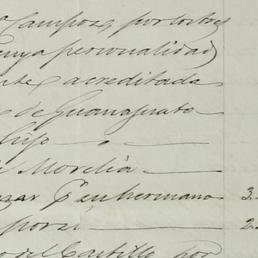 Campos, por los tres
cuya personalidad
acreditada
de Guanajuato
Hijo
de Morelia
zar Pr. su hermano 3.
por si 2.
del Castillo por